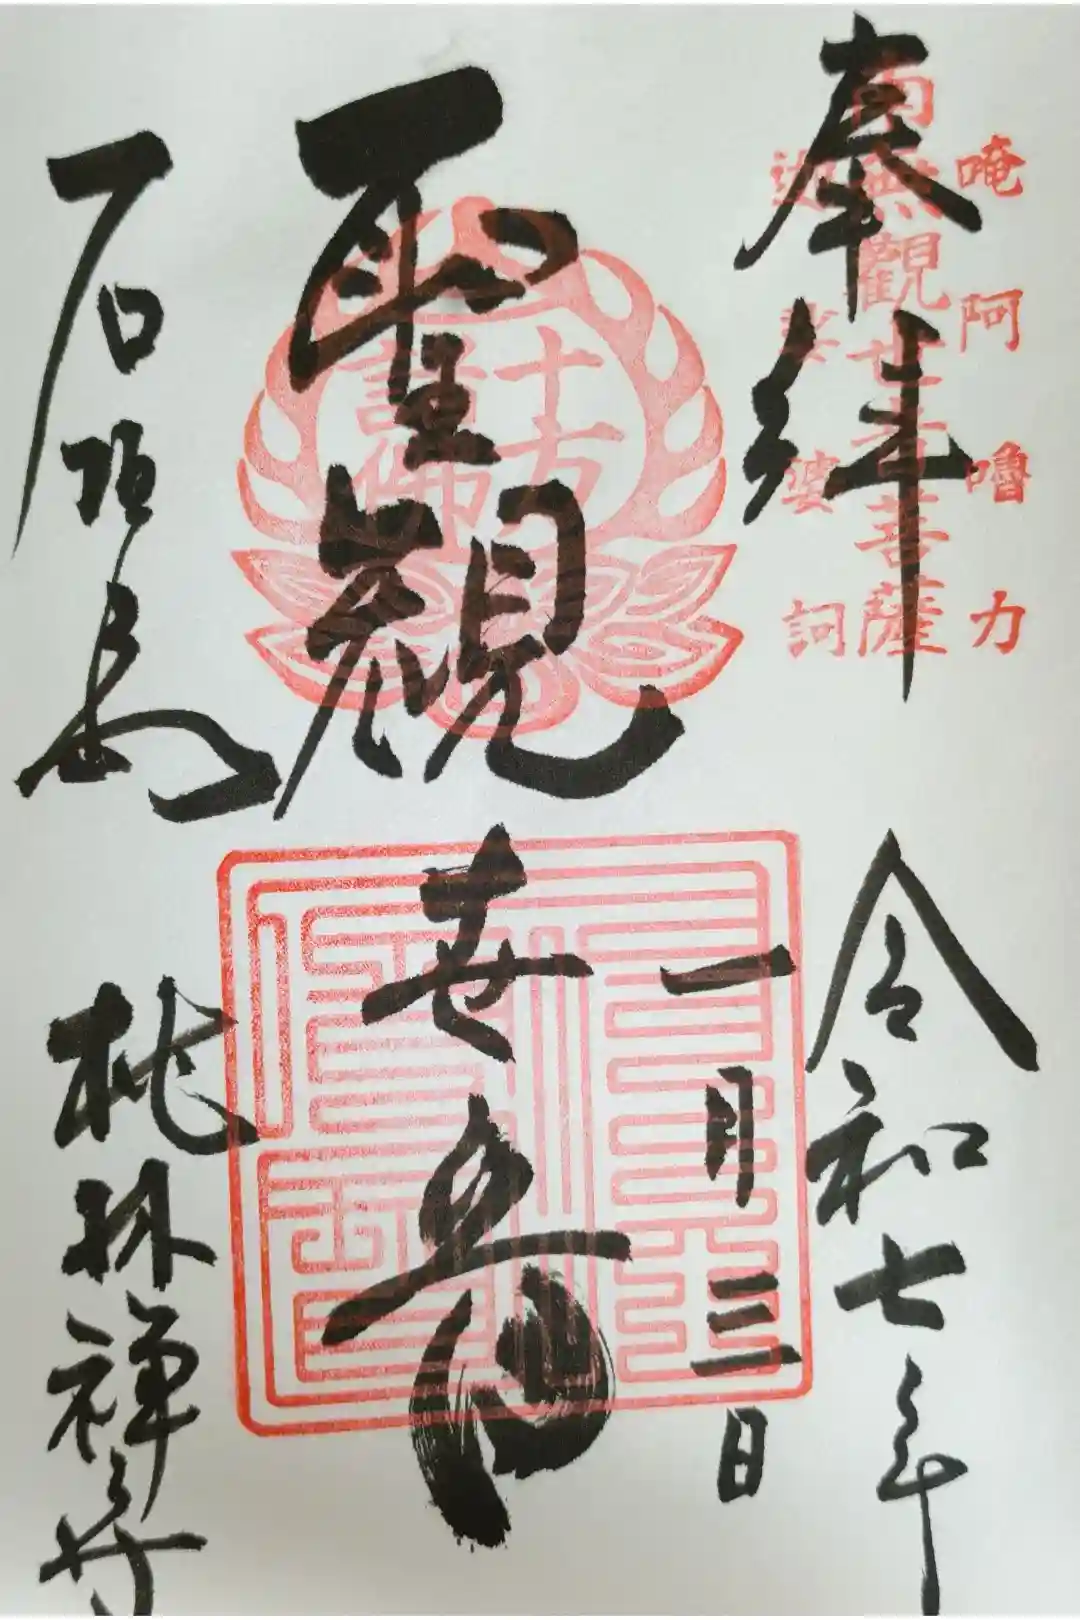 奉拝
令和七年
一月三日
唵阿嚕力
南無観世音菩薩
迦娑婆訶
十方
諸佛
聖観世音
石垣島
桃林禅寺